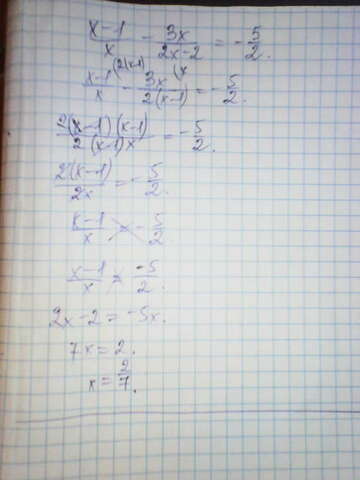 (x-1)/x - 3x/(2x-2) = -5/2.
(x-1)/x (2(x-1) - 3x/(2(x-1)) (x = -5/2.
2(x-1)(x-1)/(2(x-1)x) = -5/2.
2(x-1)/2x = -5/2.
(x-1)/x = -5/2.
(x-1)/x = -5/2.
2x-2 = -5x.
7x = 2.
x = 2/7.